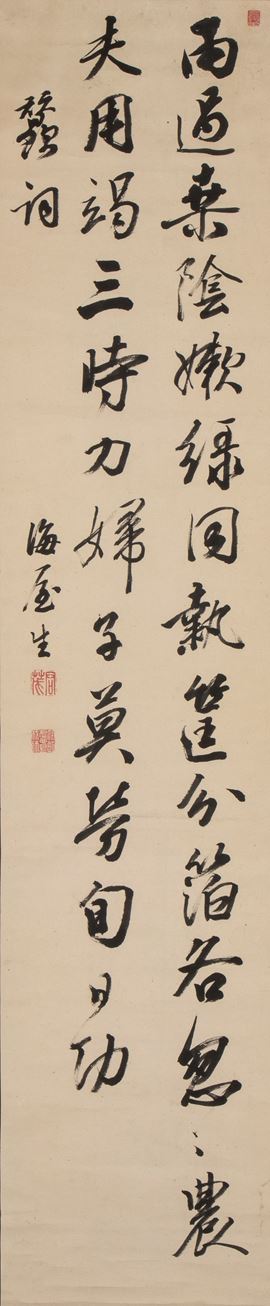 雨過桒陰嫩緑同執筐分箔各怱〻農
夫用竭三時力婦子莫勞旬日功
蠶詞
海屋生